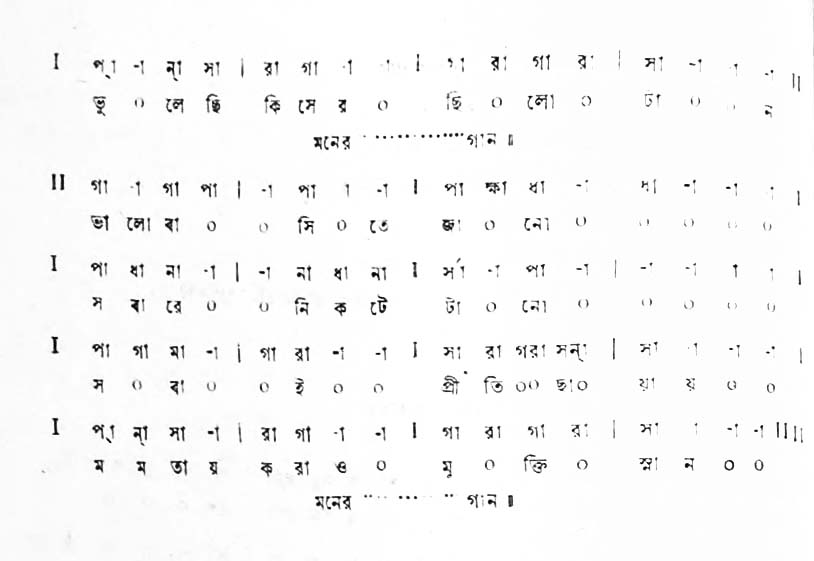 I প্‌া -া ন্‌া সা | রা গা -া -া | গা রা গা রা | সা -া -া -া II
ভু ০ লে ছি কি সে র ০ ছি ০ লো ০ টা ০ ০ ন
মনের ·············· গান ॥
II গা -া গা পা | -া পা া -া I পা ক্ষা ধা -া ধা -া -া -া I
ভা লো বা ০ ০ সি ০ তে জা ০ নো ০ ০ ০ ০ ০
I পা ধা না -া | -া না ধা না I র্সা -া পা -া | -া -া া া I
স বা রে ০ ০ নি ক টে টা ০ নো ০ ০ ০ ০ ০
I পা গা মা -া | গা রা -া -া I সা রা গরা সন্‌া | সা -া -া -া I
স ০ বা ০ ০ ই ০ ০ প্রী তি ০০ ছা০ য়া য় ০ ০
I প্‌া ন্‌া সা -া | রা গা -া -া I গা রা গা রা | সা া -া -া II II
ম ম তা য় ক রা ও ০ মু ০ ক্তি ০ স্না ন ০ ০
মনের ·········· গান ॥